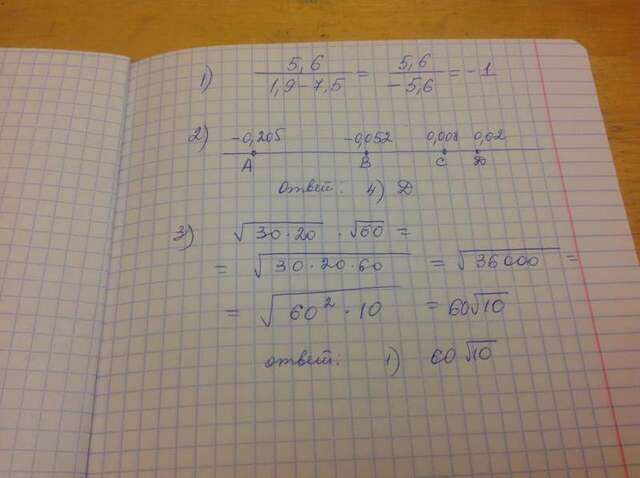 1) 5,6 / 1,9 - 7,5 = 5,6 / -5,6 = -1
2) -0,205 -0,052 0,008 0,02
A B C D
ответ: 4) D
3) √30·20 · √60 =
= √30·20·60 = √36000 =
= √60²·10 = 60√10
ответ: 1) 60√10